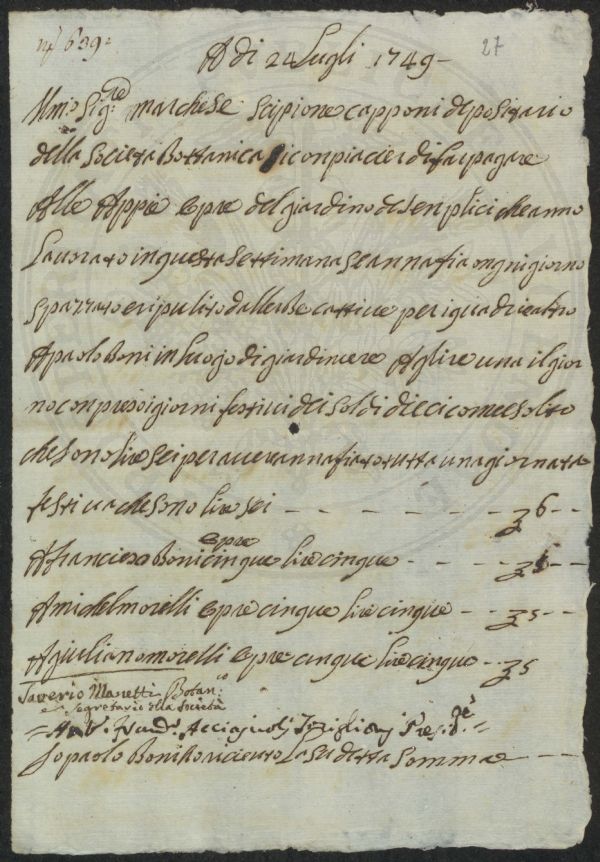 nº 639=
27
A di 24 Lugli 1749-
Illmo Sigre marchese scipione capponi depositario
della Societa Bottanica si conpiacier di far pagare
Alle Appie opre del giardino de senplici che anno
Lauorato in questa settimana e annafia ongni giorno
spazzato e ripulito dallerbe cattiue per i quadri e altro
A paolo Boni in Luogo di giardinere A lire una il gior
no conpreso i giorni festiui di soldi dieci come solito
che sono lire sei per auer annafiato tutta una giornata
festiua che sono lire sei - - - - - - - 36 - -
opre
A franciesco Boni cinque lire cinque - - - - - 35 - -
A michel morelli opre cinque lire cinque - - - 35 - -
A giuliano morelli opre cinque lire cinque - - 35
Saverio Manetti Botanco:
e Segretario della Società
= Ant. Frando. Acciajuoli Preside =
Io paolo Boni o riceuto La su detta Somma - - -